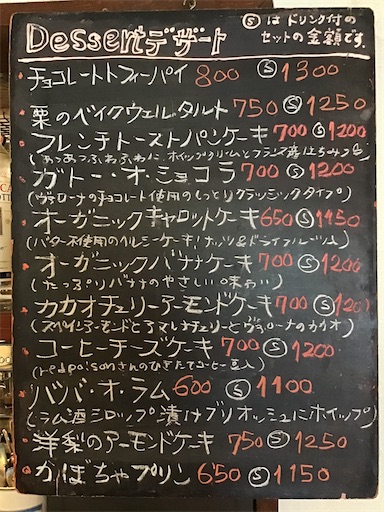 Dessertデザート
Ⓢはドリンク付の
セットの金額です。
チョコレートトフィーパイ 800 Ⓢ1300
栗のベイクウェルタルト 750 Ⓢ1250
フレンチトーストパンケーキ 700 Ⓢ1200
(あつあつふわふわに ホイップクリームとフランス産はちみつを)
ガトー・オ・ショコラ 700 Ⓢ1200
(ヴァローナのチョコレート使用のしっとりクラッシックタイプ)
オーガニックキャロットケーキ 650 Ⓢ1150
(バター不使用のヘルシーケーキ!ナッツ&ドライフルーツ入)
オーガニックバナナケーキ 700 Ⓢ1200
(たっぷりバナナのやさしい味わい)
カカオチェリーアーモンドケーキ 700 Ⓢ1200
(スペインアーモンドとアマレナチェリーとヴァローナのカカオ)
コーヒーチーズケーキ 700 Ⓢ1200
(redpoisonさんのひきたてコーヒー豆入)
ババ・オ・ラム 600 Ⓢ1100
(ラム酒シロップ漬けブリオッシュにホイップ)
洋梨のアーモンドケーキ 750 Ⓢ1250
かぼちゃプリン 650 Ⓢ1150